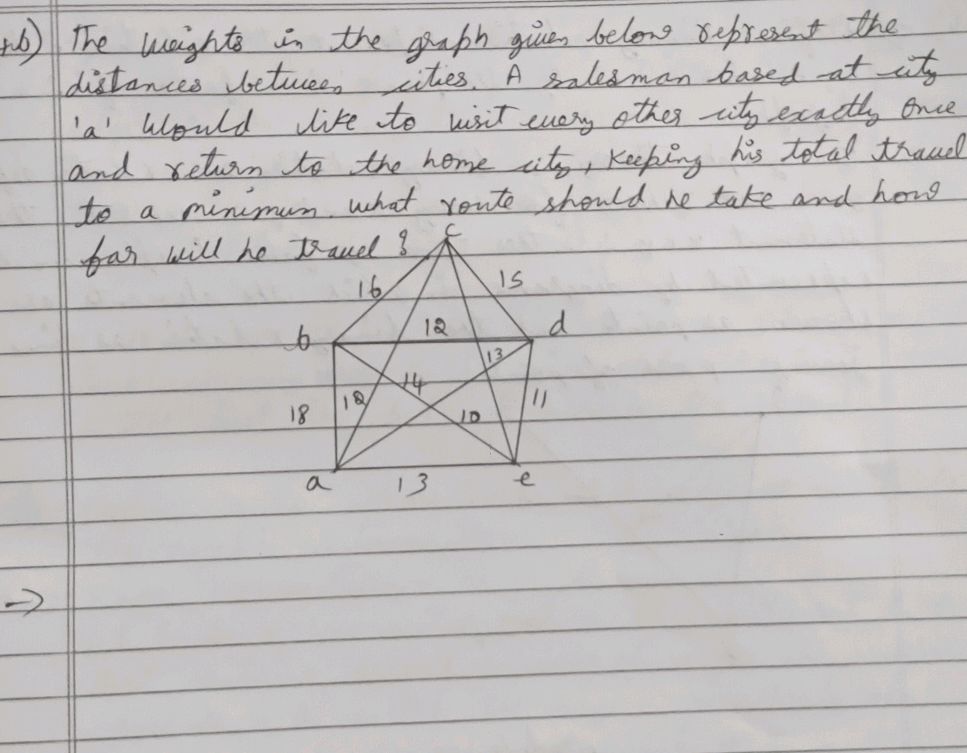 b) The weights in the graph given below represent the
distances between cities. A salesman based at city
'a' Would like to visit every other city exactly Once
and return to the home city, Keeping his total travel
to a minimum. what route should he take and how
far will he travel ?
c
16 15
b 12 d
13
14
18 12 10 11
a 13 e
→